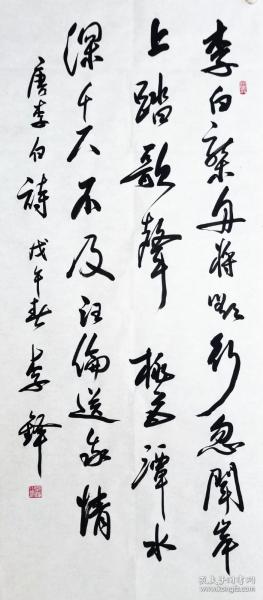 李白乘舟将欲行忽闻岸
上踏歌聲桃花潭水
深千尺不及汪倫送我情
唐李白诗戊午春李鐸
孔夫子旧书网
www.kongfz.com